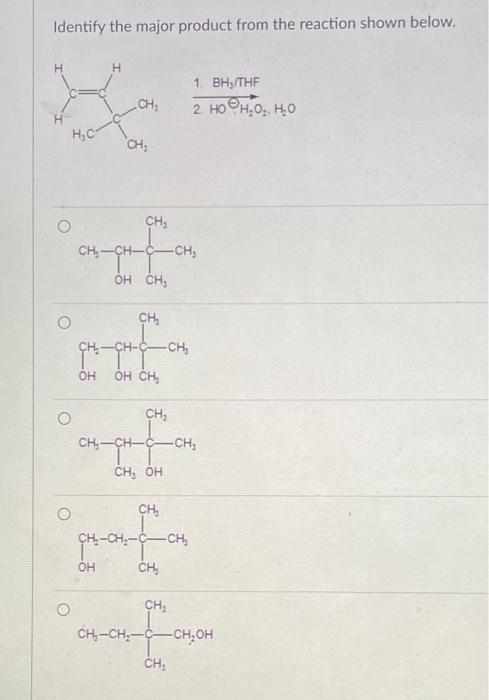 Identify the major product from the reaction shown below.
H H
C=C
H
C
CH₃
H₃C
CH₃
1. BH₃/THF
2. HO⊖ H₂O₂, H₂O
CH₃
CH₃—CH—C—CH₃
OH CH₃
CH₃
CH₂—CH-C—CH₃
OH OH CH₃
CH₃
CH₃—CH—C—CH₃
CH₃ OH
CH₃
CH₂-CH₂-C—CH₃
OH CH₃
CH₃
CH₃—CH₂—C—CH₂OH
CH₃